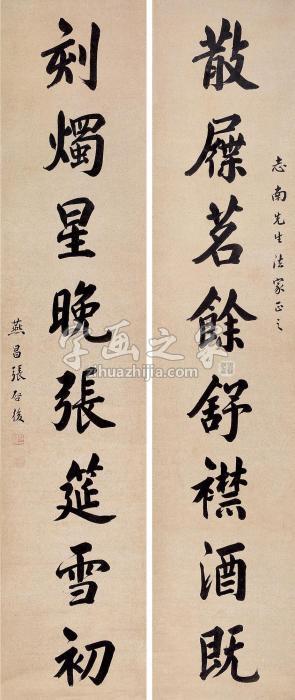 志南先生法家正之
散屧茗餘舒襟酒既
刻燭星晚張筵雪初
燕昌張啓後
字画之家
zihuazhijia.com